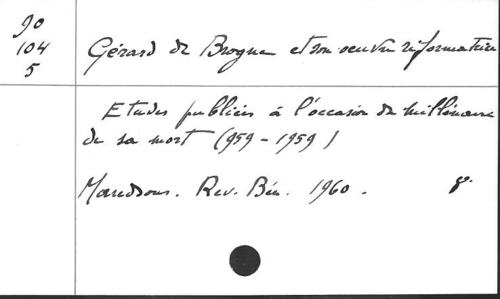 90
104
5
Gérard de Brogne et son oeuvre réformatrice
Etudes publiées à l'occasion du millénaire
de sa mort (959-1959)
Maredsous. Rev. Bén. 1960. 8°.